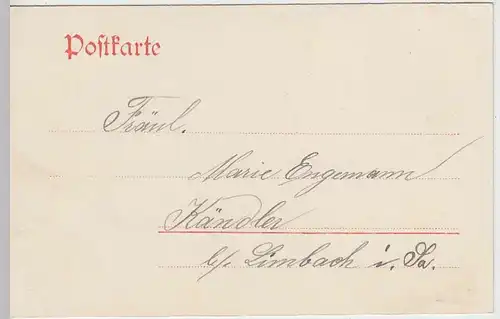 Postkarte
Fräul.
Marie Engemann
Kändler
b/. Limbach i. Sa.